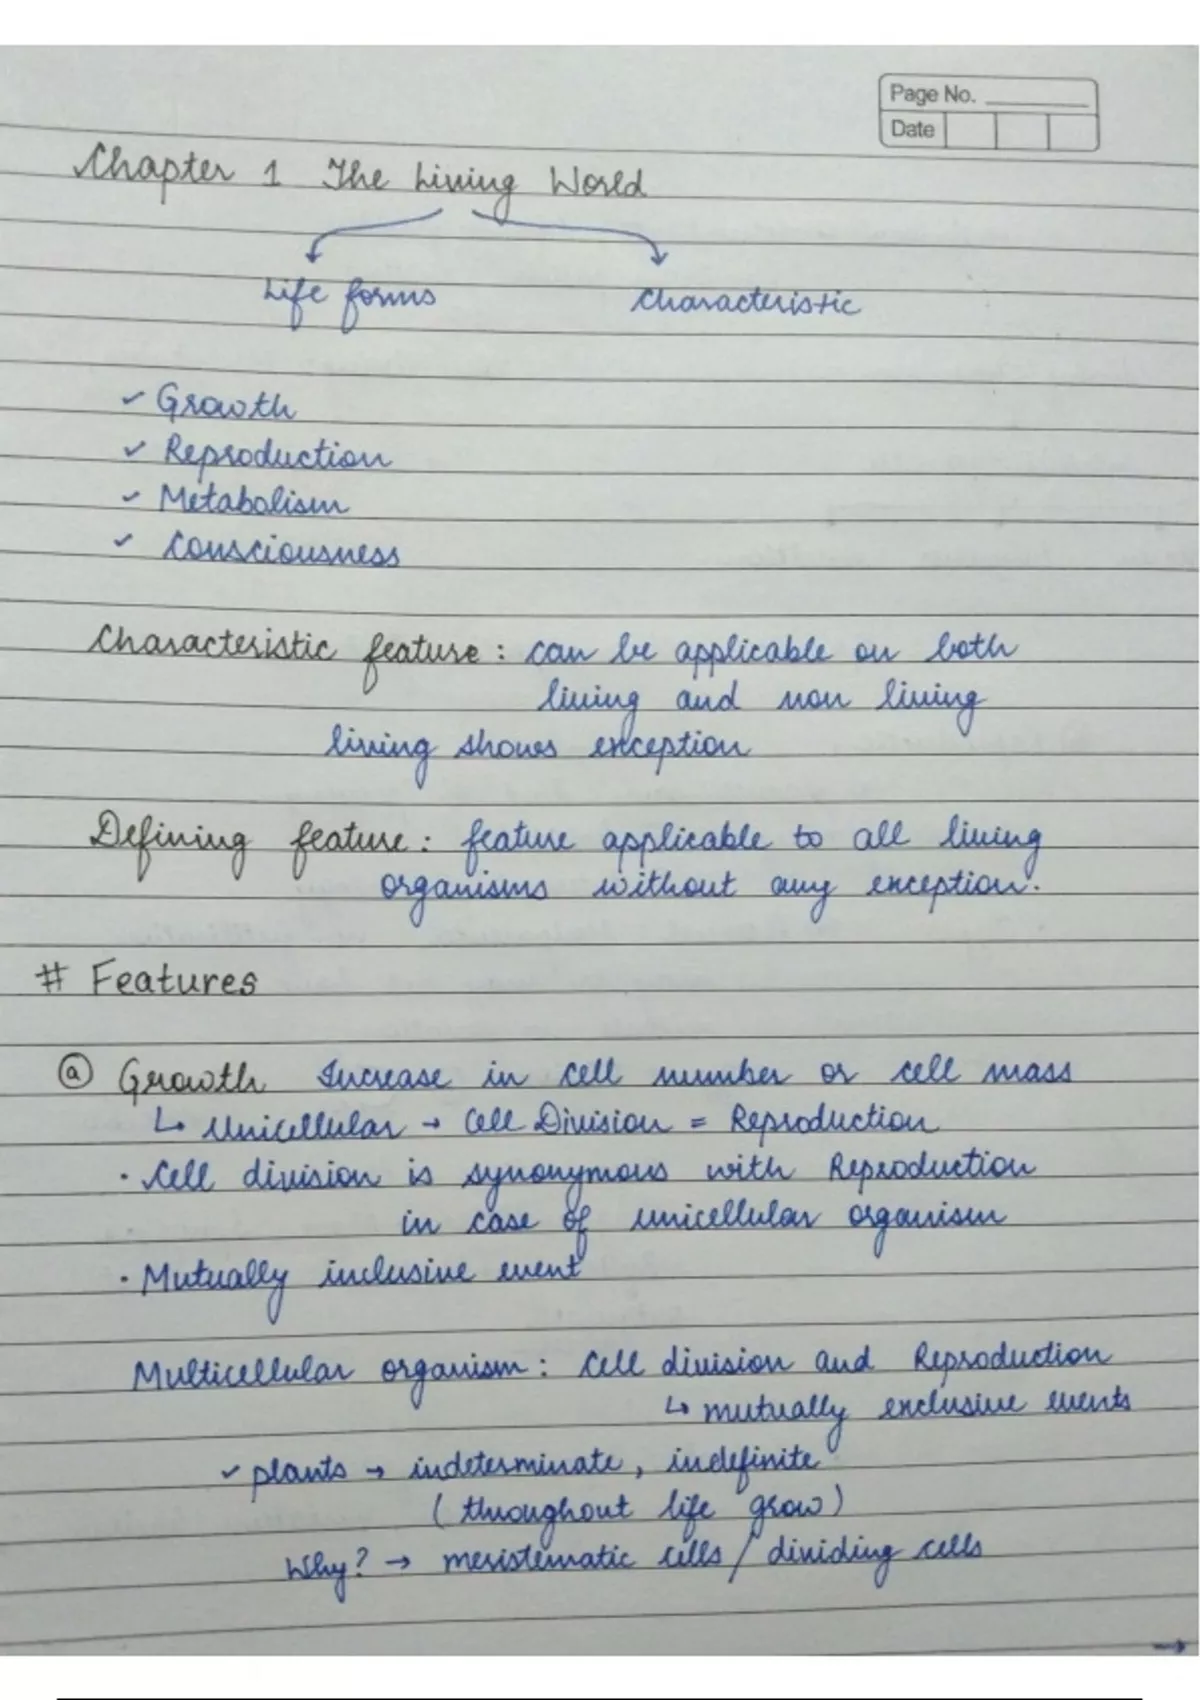 Page No.
Date
Chapter 1 The Living World
Life forms characteristic
✓ Growth
✓ Reproduction
✓ Metabolism
✓ Consciousness
Characteristic feature : can be applicable on both
living and non living
living shows exception
Defining feature : feature applicable to all living
organisms without any exception.
# Features
ⓐ Growth Increase in cell number or cell mass
↳ Unicellular → Cell Division = Reproduction
· Cell division is synonymous with Reproduction
in case of unicellular organism
· Mutually inclusive event
Multicellular organism : Cell division and Reproduction
↳ mutually exclusive events
✓ plants → indeterminate, indefinite
(throughout life grow)
Why? → meristematic cells / dividing cells
→